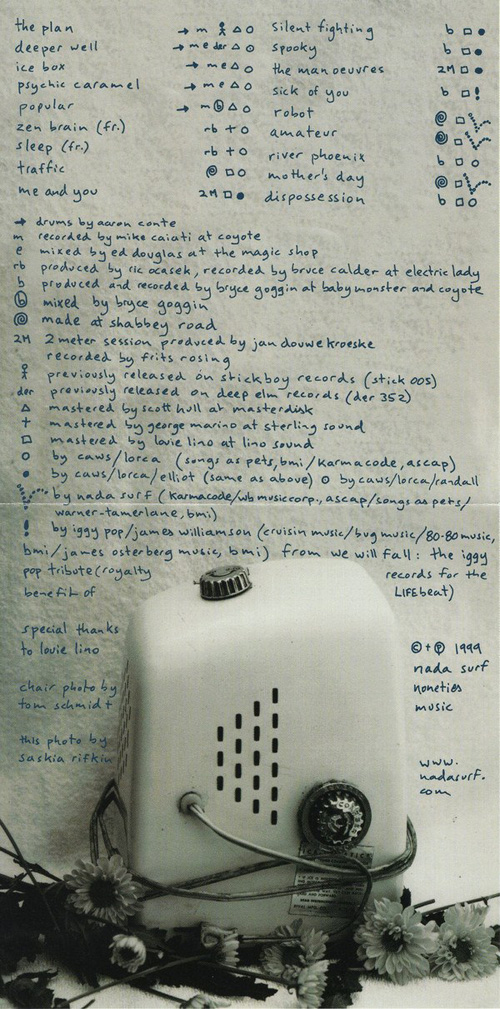 the plan → m △ ○
deeper well → m e der △ ○
ice box → m e △ ○
psychic caramel → m e △ ○
popular → m ⓑ △ ○
zen brain (fr.) rb + ○
sleep (fr.) rb + ○
traffic □ ○
me and you 2M □ ●
silent fighting b □ ●
spooky b □ ●
the manoeuvres 2M □ ●
sick of you b □ !
robot □
amateur □
river phoenix b □ ○
mother's day □
dispossession b □ ⊙
→ drums by aaron conte
m recorded by mike caiati at coyote
e mixed by ed douglas at the magic shop
rb produced by ric ocasek, recorded by bruce calder at electric lady
b produced and recorded by bryce goggin at baby monster and coyote
ⓑ mixed by bryce goggin
made at shabbey road
2M 2 meter session produced by jan douwe kroeske
recorded by frits rosing
previously released on stickboy records (stick 005)
der previously released on deep elm records (der 352)
△ mastered by scott hull at masterdisk
+ mastered by george marino at sterling sound
□ mastered by louie lino at lino sound
○ by caws/lorca (songs as pets, bmi/karmacode, ascap)
● by caws/lorca/elliot (same as above) ⊙ by caws/lorca/randall
by nada surf (karmacode/wb music corp., ascap/songs as pets/
warner-tamerlane, bmi)
! by iggy pop/james williamson (cruisin music/bug music/80-80 music,
bmi/james osterberg music, bmi) from we will fall: the iggy
pop tribute (royalty records for the
benefit of LIFEbeat)
special thanks
to louie lino
chair photo by
tom schmidt
this photo by
saskia rifkin
© + ℗ 1999
nada surf
noneties
music
www.
nadasurf.
com